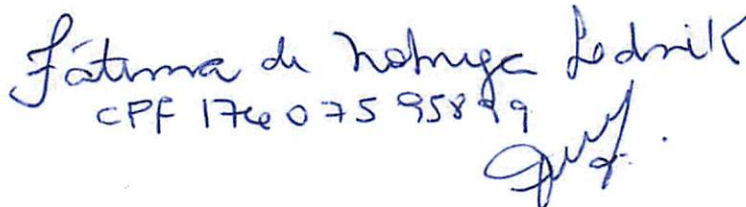 Fátima de Nobrega Lednik
CPF